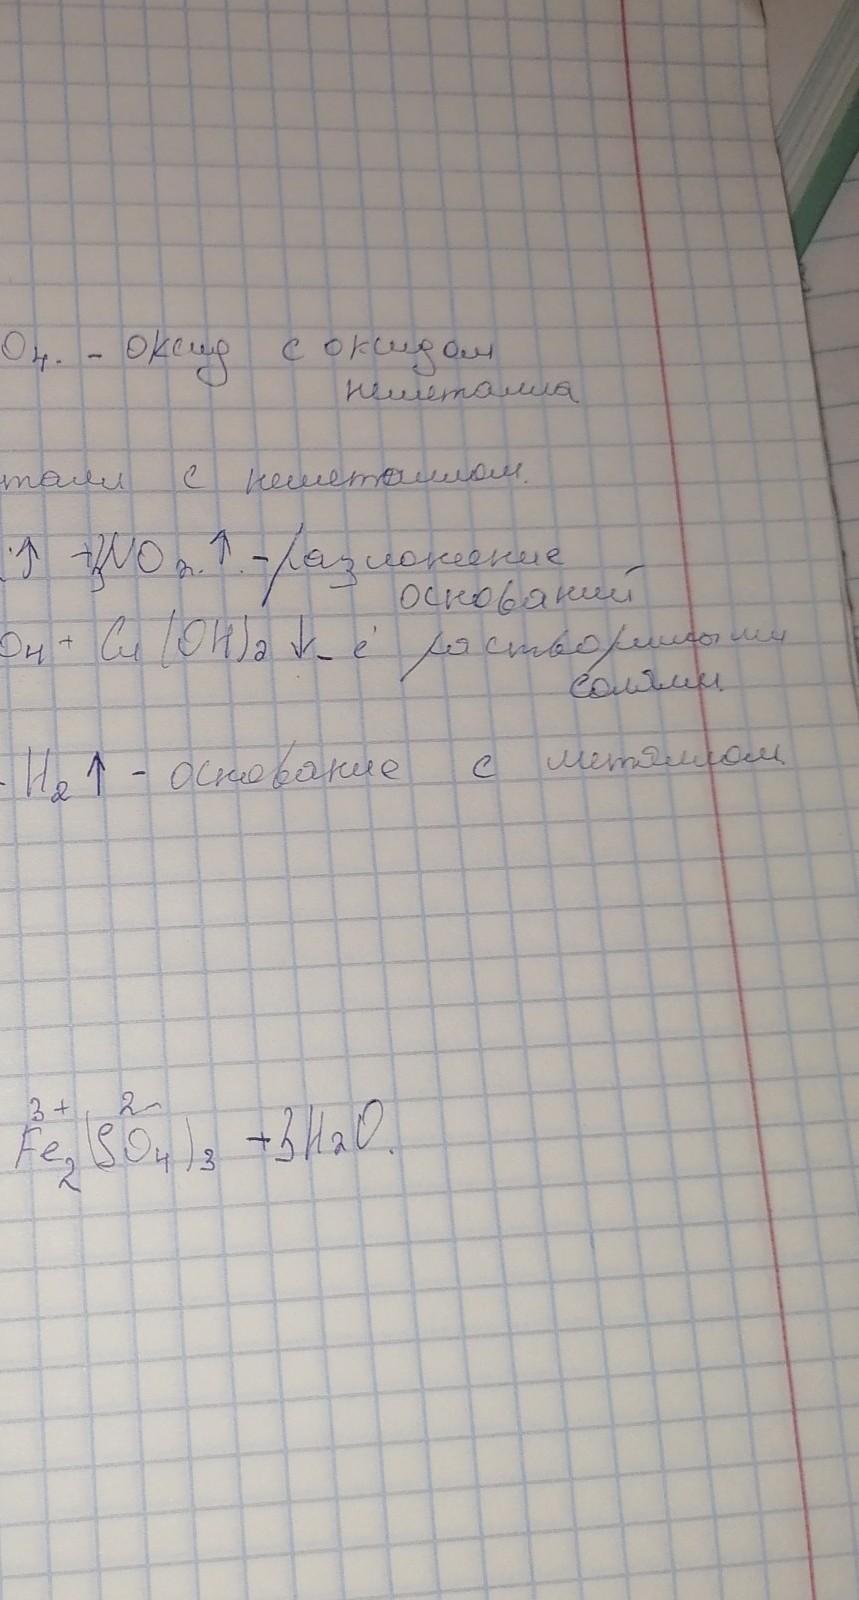 O₄. - оксид с оксидом
неметалла
талл с неметаллом.
.↑ +3NO₂.↑. - разложение
оснований
O₄ + Cu(OH)₂↓ - с растворимыми
солями
H₂↑ - основание с металлом
3+ 2-
Fe₂(SO₄)₃ +3H₂O.